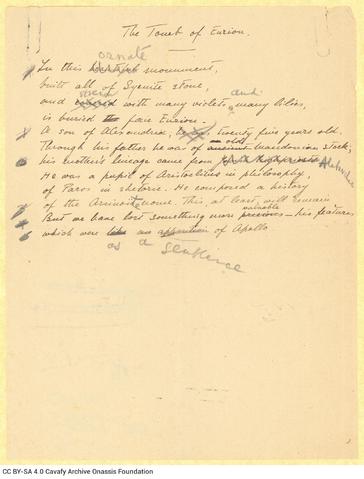 The Tomb of Eurion.
ornate
In this monument,
built all of Syenite stone,
and
and covered with many violets, many lilies,
is buried the fair Eurion.
A son of Alexandria, twenty five years old.
Through his father he was of an old Macedonian stock;
his mother's lineage came from
He was a pupil of Aristoclitus in philosophy,
of Paros in rhetoric. He composed a history
of the Arsinoite nome. This, at least, will remain
valuable
But we have lost something more precious — his features
which were like an apparition of Apollo
as a sentence
CC BY-SA 4.0 Cavafy Archive Onassis Foundation